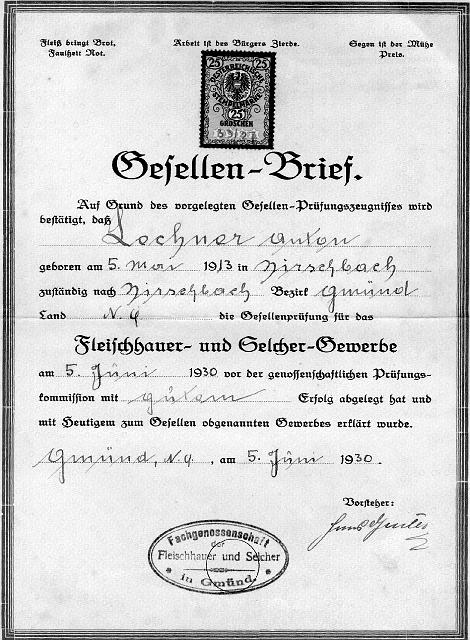 Fleiß bringt Brot,
Faulheit Not.
Arbeit ist des Bürgers Zierde.
Segen ist der Mühe
Preis.
25 25
ÖSTERREICHISCHE
STEMPELMARKE
25
GROSCHEN
Gesellen-Brief.
Auf Grund des vorgelegten Gesellen-Prüfungszeugnisses wird
bestätigt, daß
Lechner Anton
geboren am 5. Mai 1913 in Hirschbach
zuständig nach Hirschbach Bezirk Gmünd
Land N. Ö die Gesellenprüfung für das
Fleischhauer- und Selcher-Gewerbe
am 5. Juni 1930 vor der genossenschaftlichen Prüfungs-
kommission mit gutem Erfolg abgelegt hat und
mit Heutigem zum Gesellen obgenannten Gewerbes erklärt wurde.
Gmünd, N.Ö., am 5. Juni 1930.
Vorsteher:
Fachgenossenschaft
der
Fleischhauer und Selcher
in Gmünd.